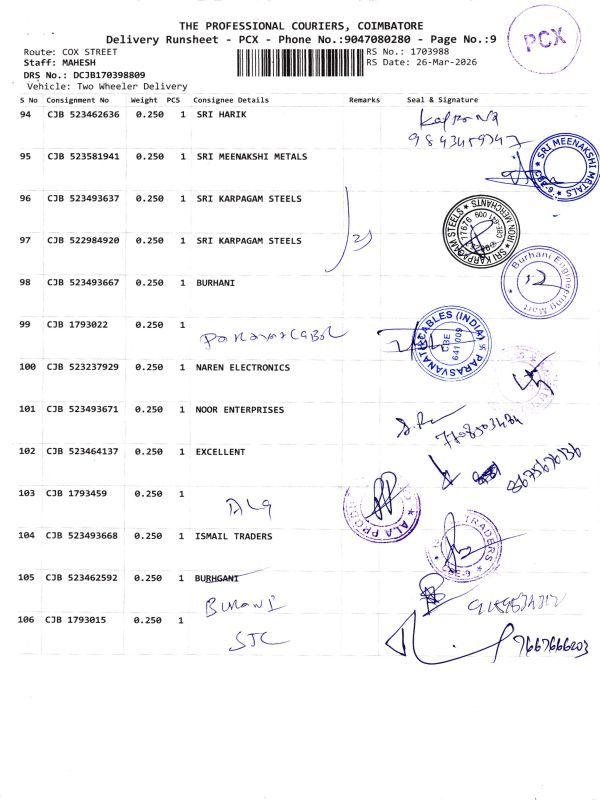 THE PROFESSIONAL COURIERS, COIMBATORE
Delivery Runsheet - PCX - Phone No.:9047080280 - Page No.:9
PCX
Route: COX STREET
RS No.: 1703988
Staff: MAHESH
RS Date: 26-Mar-2026
DRS No.: DCJB170398809
Vehicle: Two Wheeler Delivery
S No Consignment No Weight PCS Consignee Details Remarks Seal & Signature
94 CJB 523462636 0.250 1 SRI HARIK
95 CJB 523581941 0.250 1 SRI MEENAKSHI METALS
SRI MEENAKSHI METALS CBE-9
96 CJB 523493637 0.250 1 SRI KARPAGAM STEELS
SRI KARPAGAM STEELS IRON MERCHANTS
97 CJB 522984920 0.250 1 SRI KARPAGAM STEELS
98 CJB 523493667 0.250 1 BURHANI
Burhani Engineering Mart
99 CJB 1793022 0.250 1
PARASVANATH CABLES (INDIA) CBE 641 009
100 CJB 523237929 0.250 1 NAREN ELECTRONICS
101 CJB 523493671 0.250 1 NOOR ENTERPRISES
7708503484
102 CJB 523464137 0.250 1 EXCELLENT
8675676136
103 CJB 1793459 0.250 1
ALA
104 CJB 523493668 0.250 1 ISMAIL TRADERS
TRADERS CBE-9
105 CJB 523462592 0.250 1 BURHGANI
106 CJB 1793015 0.250 1
STC
7667666203